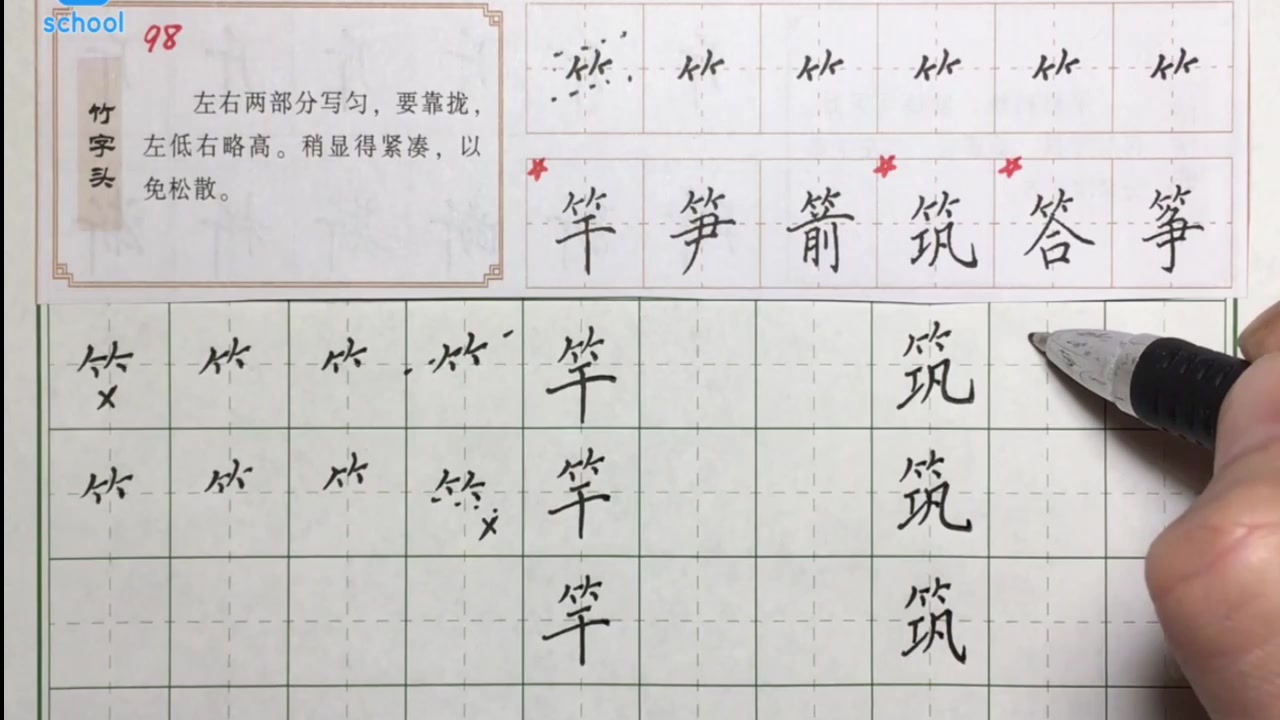 school
98
竹字头
左右两部分写匀，要靠拢，
左低右略高。稍显得紧凑，以
免松散。
⺮ ⺮ ⺮ ⺮ ⺮ ⺮
竿 笋 箭 筑 答 筝
⺮ ⺮ ⺮ ⺮ 竿 筑
x
⺮ ⺮ ⺮ ⺮ 竿 筑
x
竿 筑